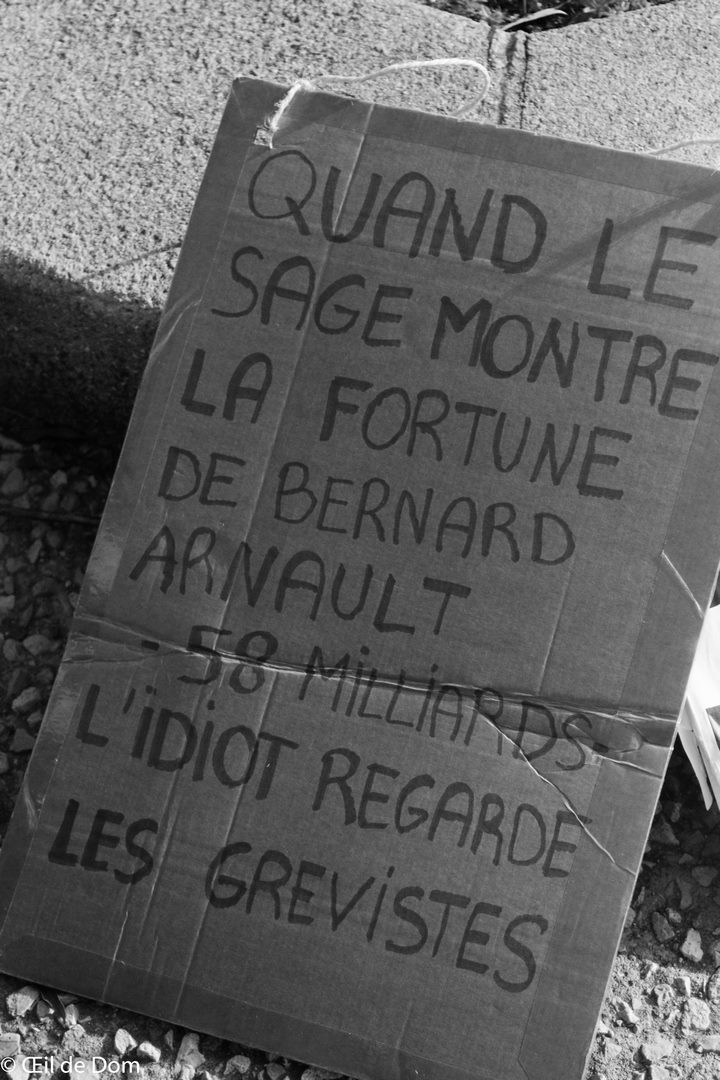 QUAND LE
SAGE MONTRE
LA FORTUNE
DE BERNARD
ARNAULT
- 58 MILLIARDS-
L'IDIOT REGARDE
LES GREVISTES
© Œil de Dom